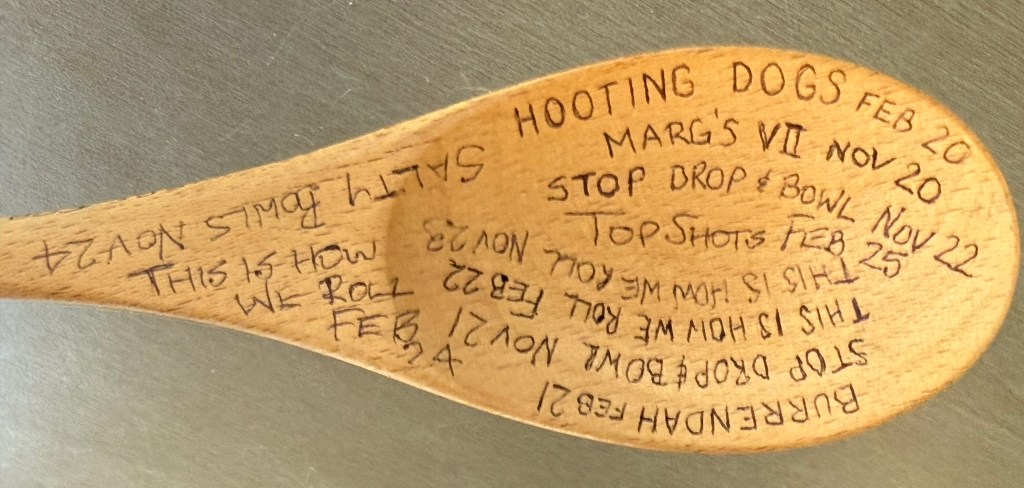 HOOTING DOGS FEB 20
MARG'S VII NOV 20
STOP DROP & BOWL NOV 22
TOP SHOTS FEB 25
THIS IS HOW WE ROLL NOV 23
THIS IS HOW WE ROLL FEB 22
STOP DROP & BOWL NOV 21
BURRENDAH FEB 21
SALTY BOWLS NOV 24
THIS IS HOW
WE ROLL
FEB
24